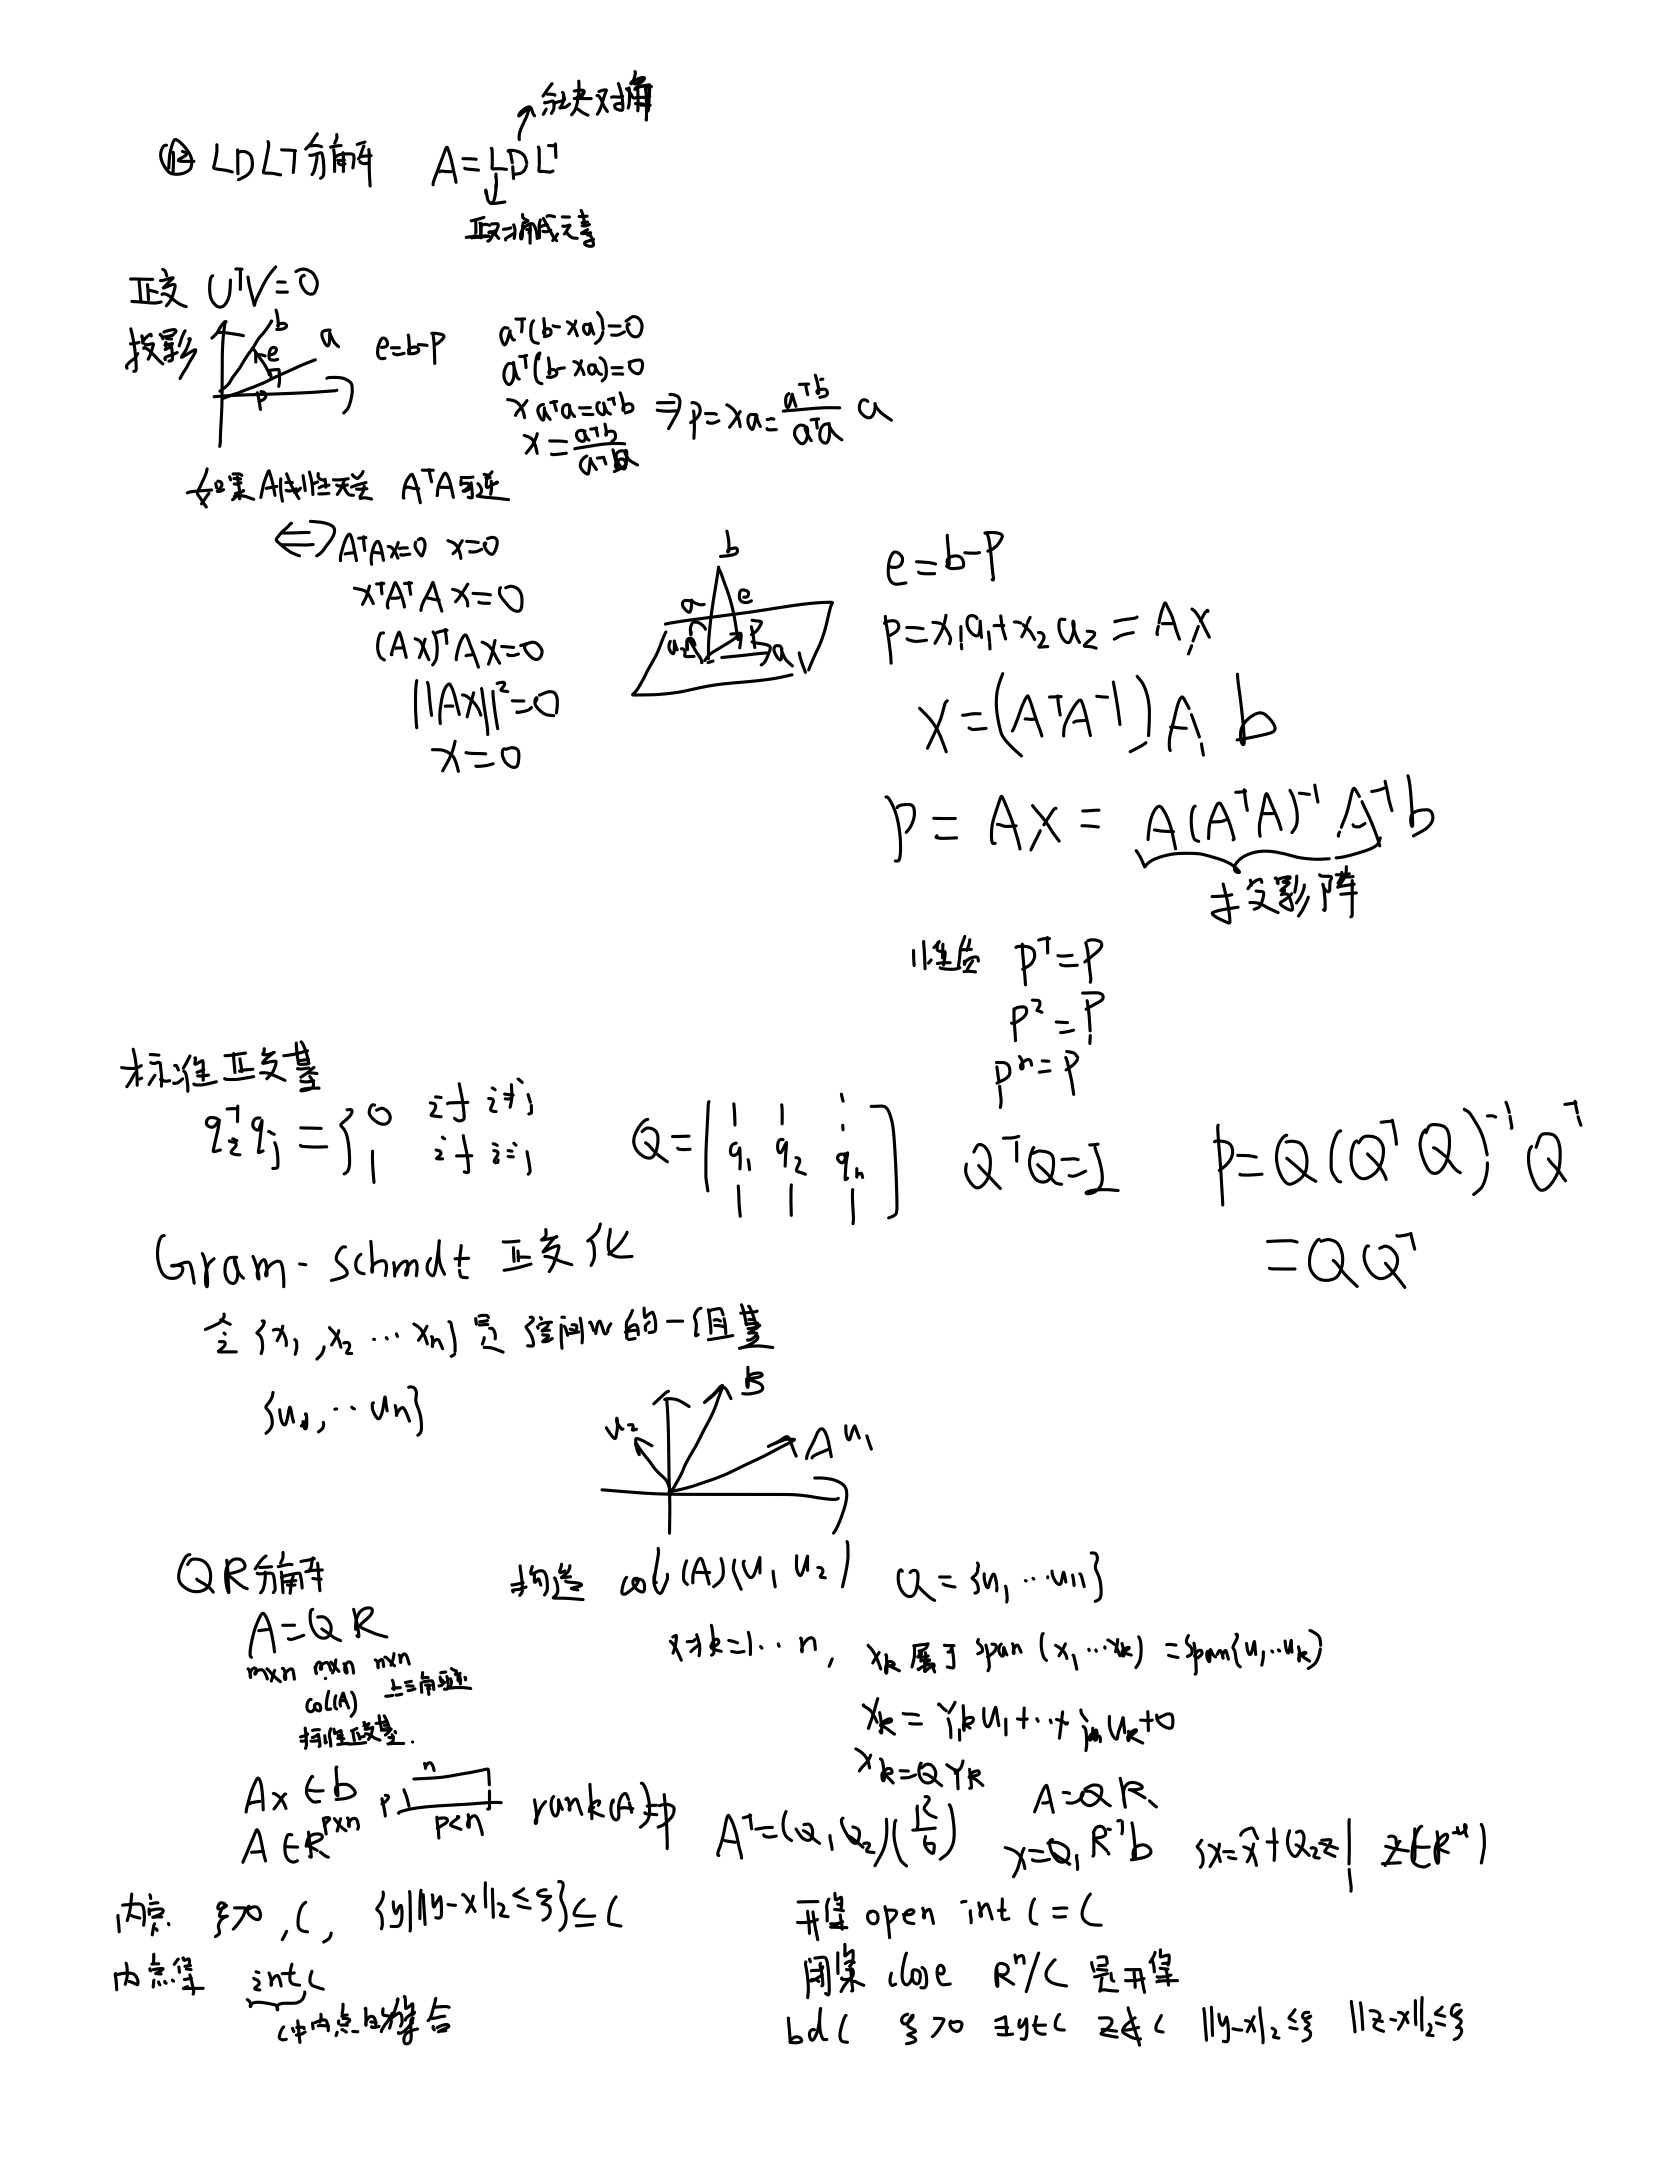 分块对角
LDLT分解 A=LDLᵀ
正对角线元素
正交 UᵀV=0
投影 b a e p e=b-P
aᵀ(b-xa)=0
aᵀ(b-xa)=0
xaᵀa=aᵀb ⇒ p=xa=aᵀb/aᵀa a
x=aᵀb/aᵀa
如果A线性无关 AᵀA可逆
⇔ AᵀAx=0 x=0
xᵀAᵀAx=0
(Ax)ᵀAx=0
||Ax||²=0
x=0
b
a e
a₂ P a₁ V
e=b-P
p=x₁a₁+x₂a₂=Ax
X=(AᵀA⁻¹)A b
P=AX=A(AᵀA)⁻¹Aᵀb
投影阵
性质 Pᵀ=P
P²=P
Pⁿ=P
标准正交基
qᵢᵀqⱼ={0 i于 i≠j
1 i于 i=j
Q=[q₁ q₂ qₙ] QᵀQ=I
P=Q(QᵀQ)⁻¹Qᵀ
=QQᵀ
Gram-schmdt 正交化
令{x₁,x₂…xₙ}是空间W的一组基
{u₁,…uₙ}
u₂ B A u₁
QR分解
A=QR
m×n m×n n×n
col(A) 上三角可逆
标准正交基.
构造 col(A)(u₁ u₂) Q={u₁…un}
对k=1…n, xₖ属于span(x₁…xₖ)=span{u₁…uₖ)
xₖ=γ₁ₖu₁+…+ uₖ+0
xₖ=Qγₖ
A=QR
Ax∈b
A∈R p×n
p n p<n
rank(A)=p
Aᵀ=(Q₁Q₂)(R/0)
x=Q₁R⁻ᵀb {x=x̂+Q₂z| z∈R
内点 ξ>0,C,{y|||y-x||₂≤ξ}⊆C
内点集 intC
C中内点的集合
开集 open int C=C
闭集 close Rⁿ/C 是开集
bdC ξ>0 ∃y∈C z∉C ||y-x||₂≤ξ ||z-x||₂≤ξ